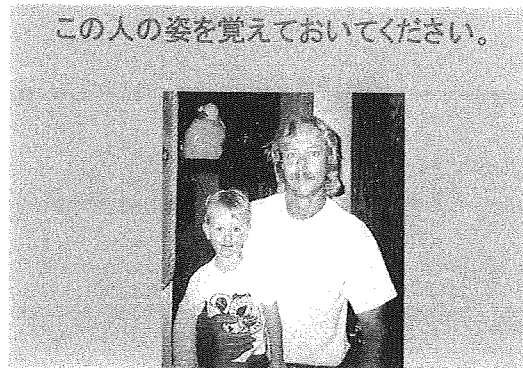 この人の姿を覚えておいてください。